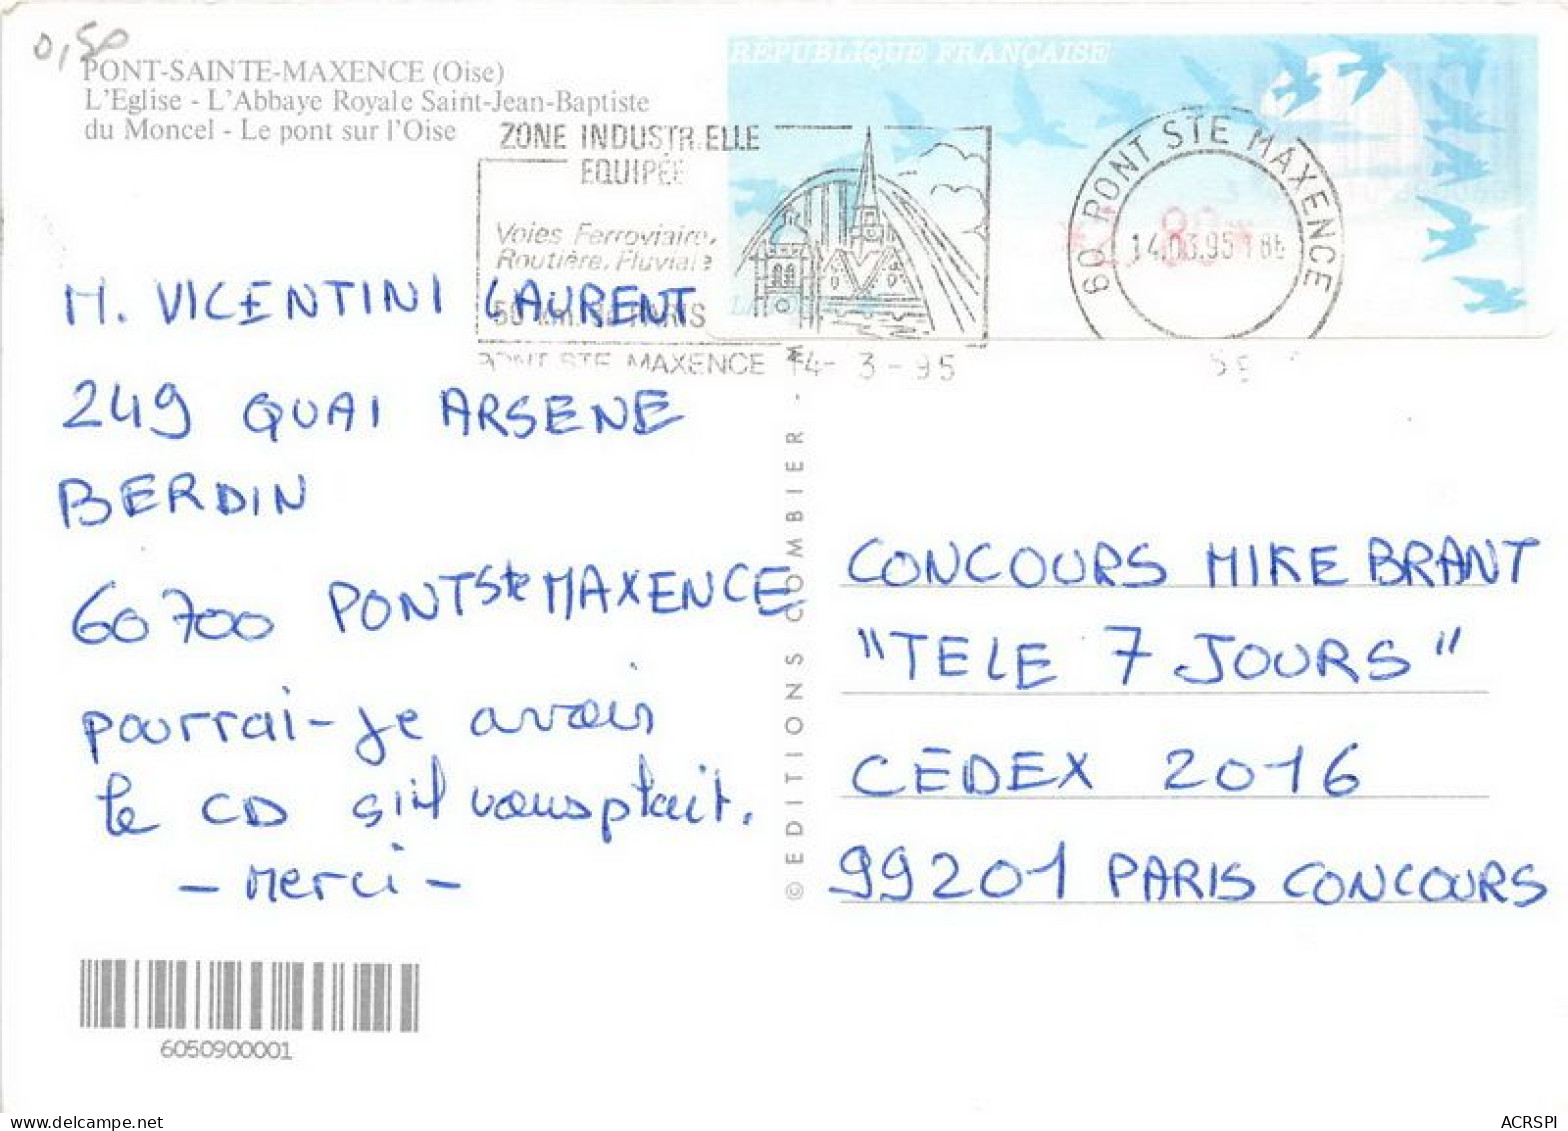 0,50
PONT-SAINTE-MAXENCE (Oise)
L'Eglise - L'Abbaye Royale Saint-Jean-Baptiste
du Moncel - Le pont sur l'Oise
RÉPUBLIQUE FRANÇAISE
ZONE INDUSTRIELLE
EQUIPÉE
Voies Ferroviaire,
Routière, Fluviale
50 km. de PARIS
PONT STE MAXENCE 14- 3 - 95
60 PONT STE MAXENCE
14.03.95 18H
M. VICENTINI LAURENT
249 QUAI ARSENE
BERDIN
60700 PONT Ste MAXENCE
pourrai-je avoir
le CD s'il vous plait.
- Merci -
© EDITIONS COMBIER - M
CONCOURS MIKE BRANT
"TELE 7 JOURS"
CEDEX 2016
99201 PARIS CONCOURS
6050900001
delcampe.net
ACRSPI